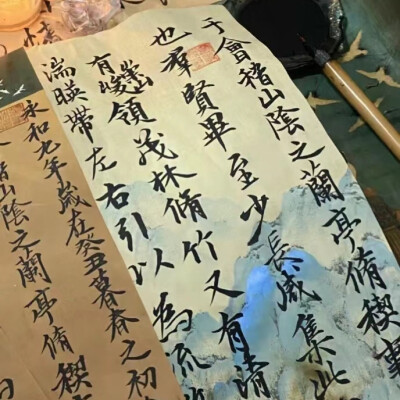 于會稽山陰之蘭亭脩稧事
也羣賢畢至少長咸集此
有崇山峻領茂林脩竹又有清
湍暎帶左右引以為流
永和九年歲在癸丑暮春之初
稽山陰之蘭亭脩稧